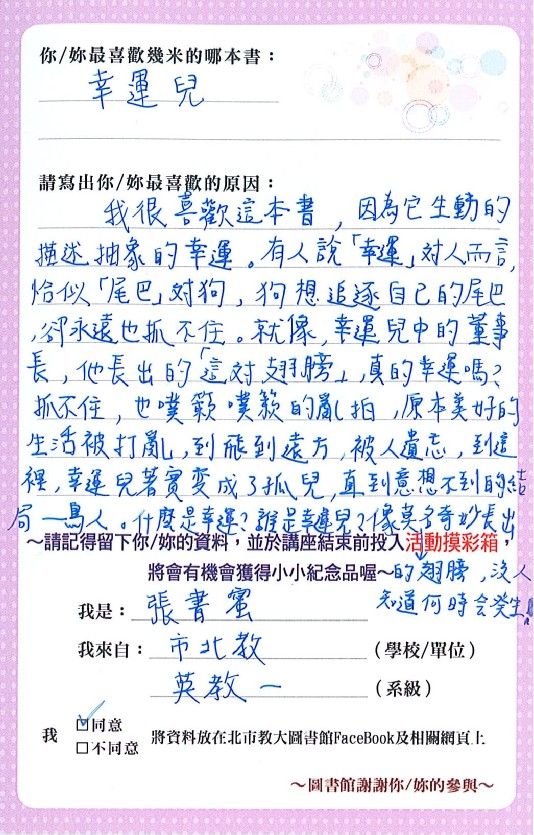 你/妳最喜歡幾米的哪本書：
幸運兒
請寫出你/妳最喜歡的原因：
我很喜歡這本書，因為它生動的
描述抽象的幸運。有人說「幸運」對人而言，
恰似「尾巴」對狗，狗想追逐自己的尾巴
，卻永遠也抓不住。就像，幸運兒中的董事
長，他長出的「這對翅膀」，真的幸運嗎？
抓不住，也噗簌噗簌的亂拍，原本美好的
生活被打亂，到飛到遠方，被人遺忘，到這
裡，幸運兒著實變成了孤兒，直到意想不到的結
局－鳥人。什麼是幸運？誰是幸運兒？像莫名奇妙長出
～請記得留下你/妳的資料，並於講座結束前投入活動摸彩箱，
將會有機會獲得小小紀念品喔～
的翅膀，沒人
知道何時會發生！
我是：張書蜜
我來自：市北教（學校/單位）
英教一（系級）
我 ☑同意
□不同意 將資料放在北市教大圖書館FaceBook及相關網頁上
～圖書館謝謝你/妳的參與～